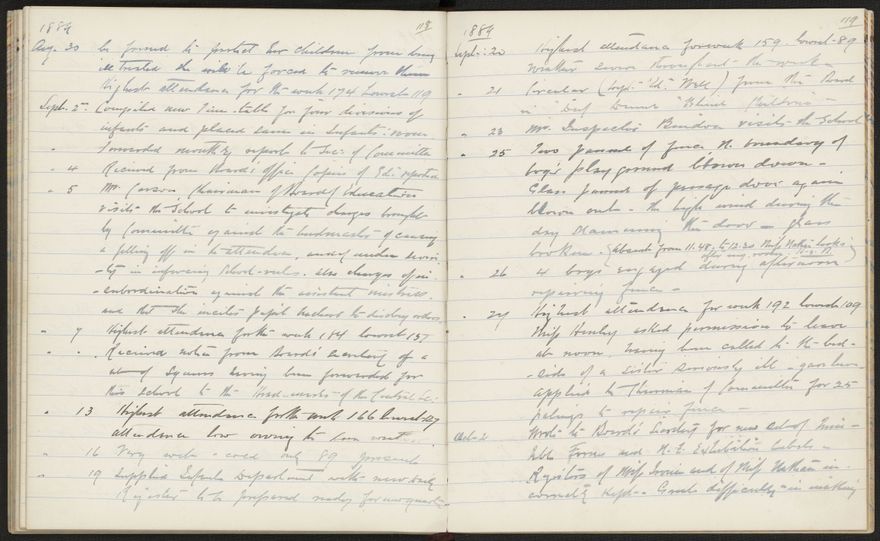 1889 118
Aug. 30 be forced to protect her children from being
ill treated she will be forced to remove them
Highest attendance for the week 174 Lowest 119
Sept. 2 Compiled new Time-table for four divisions of
infants and placed same in Infants' room
" Forwarded monthly report to Sec: of Committee
" 4 Received from Board's Office Copies of reports
" 5 Mr. Carson Chairman of Board of Education
visits the School to investigate charges brought
by Committee against the headmaster of causing
a falling off in the attendance, and of undue
in enforcing School-rules. also charges of in-
-subordination against the assistant mistress.
and that she incites pupil teachers to disobey orders.
" 7 Highest attendance for the week 184 lowest 157
" " Received notice from Board's Secretary of a
set of having been forwarded for
this School to the Head-master of the Central Sc:
" 13 Highest attendance for the week 166 lowest
attendance low owing to
" 16 Very wet & cold only 89 present
" 19 Supplied Infants Department with new
Register to be prepared ready for new quarter
1889 119
Sept: 20 Highest attendance for week 159. lowest 89
weather throughout the week
" 21 Circular (Sept. Well) from the Board
in Deaf Dumb Blind Children
" 23 Mr. Inspector visits the School
" 25 Two pannels of fence N. boundary of
boys' playground blown down -
Glass pannel of passage door again
blown out. - the high wind during the
day slamming the door - glass
broken. {Absent from 11.48, to 12.30 Miss Nathan
" 26 4 boys engaged during afternoon
repairing fence -
" 27 Highest attendance for week 192 lowest 109
Miss Henley asked permission to leave
at noon, having been called to the bed-
-side of a sister seriously ill -
applied to Chairman of Committee for 25
palings to repair fence -
Oct. 2 Wrote to Board's Secretary for new set of
Forms and N.Z. Exhibition labels -
Registers of Miss and of Miss Nathan in-
correctly kept - Great difficulty in making